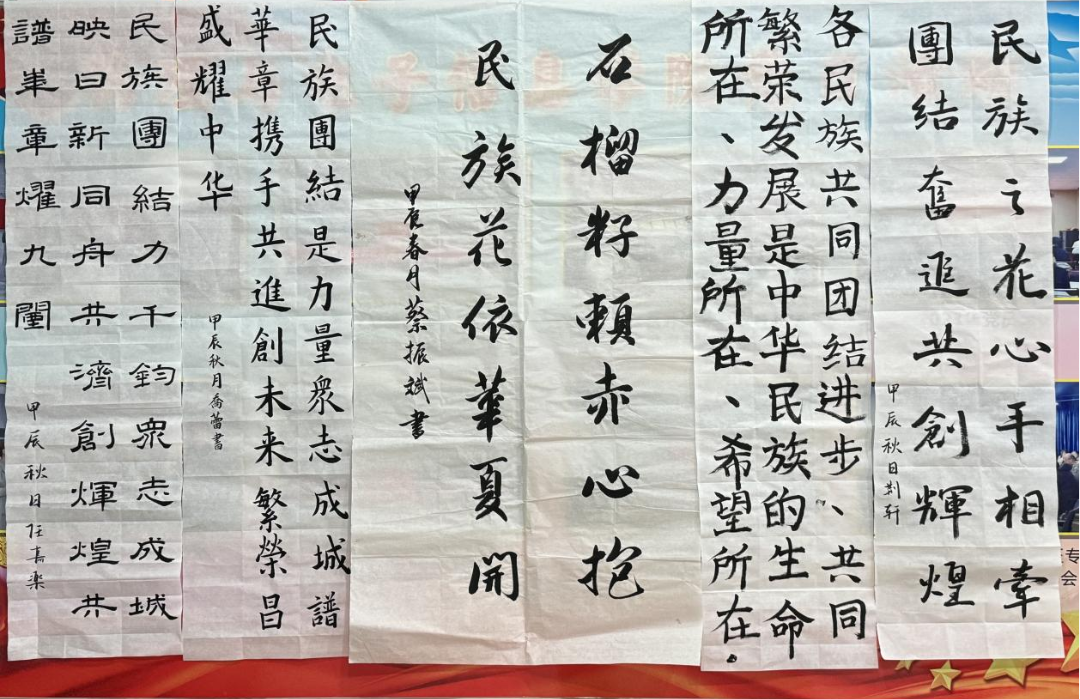 民族之花心手相牽
團結奮進共創輝煌
甲辰秋日荆轩
各民族共同团结进步、共同
繁荣发展是中华民族的生命
所在、力量所在、希望所在.
石榴籽賴赤心抱
民族花依華夏開
甲辰春月蔡振斌書
民族團結是力量眾志成城譜
華章携手共進創未来繁榮昌
盛耀中华
甲辰秋月喬蕾書
民族團結力千鈞眾志成城
映日新同舟共濟創輝煌共
譜華章耀九闈
甲辰秋日任嘉樂